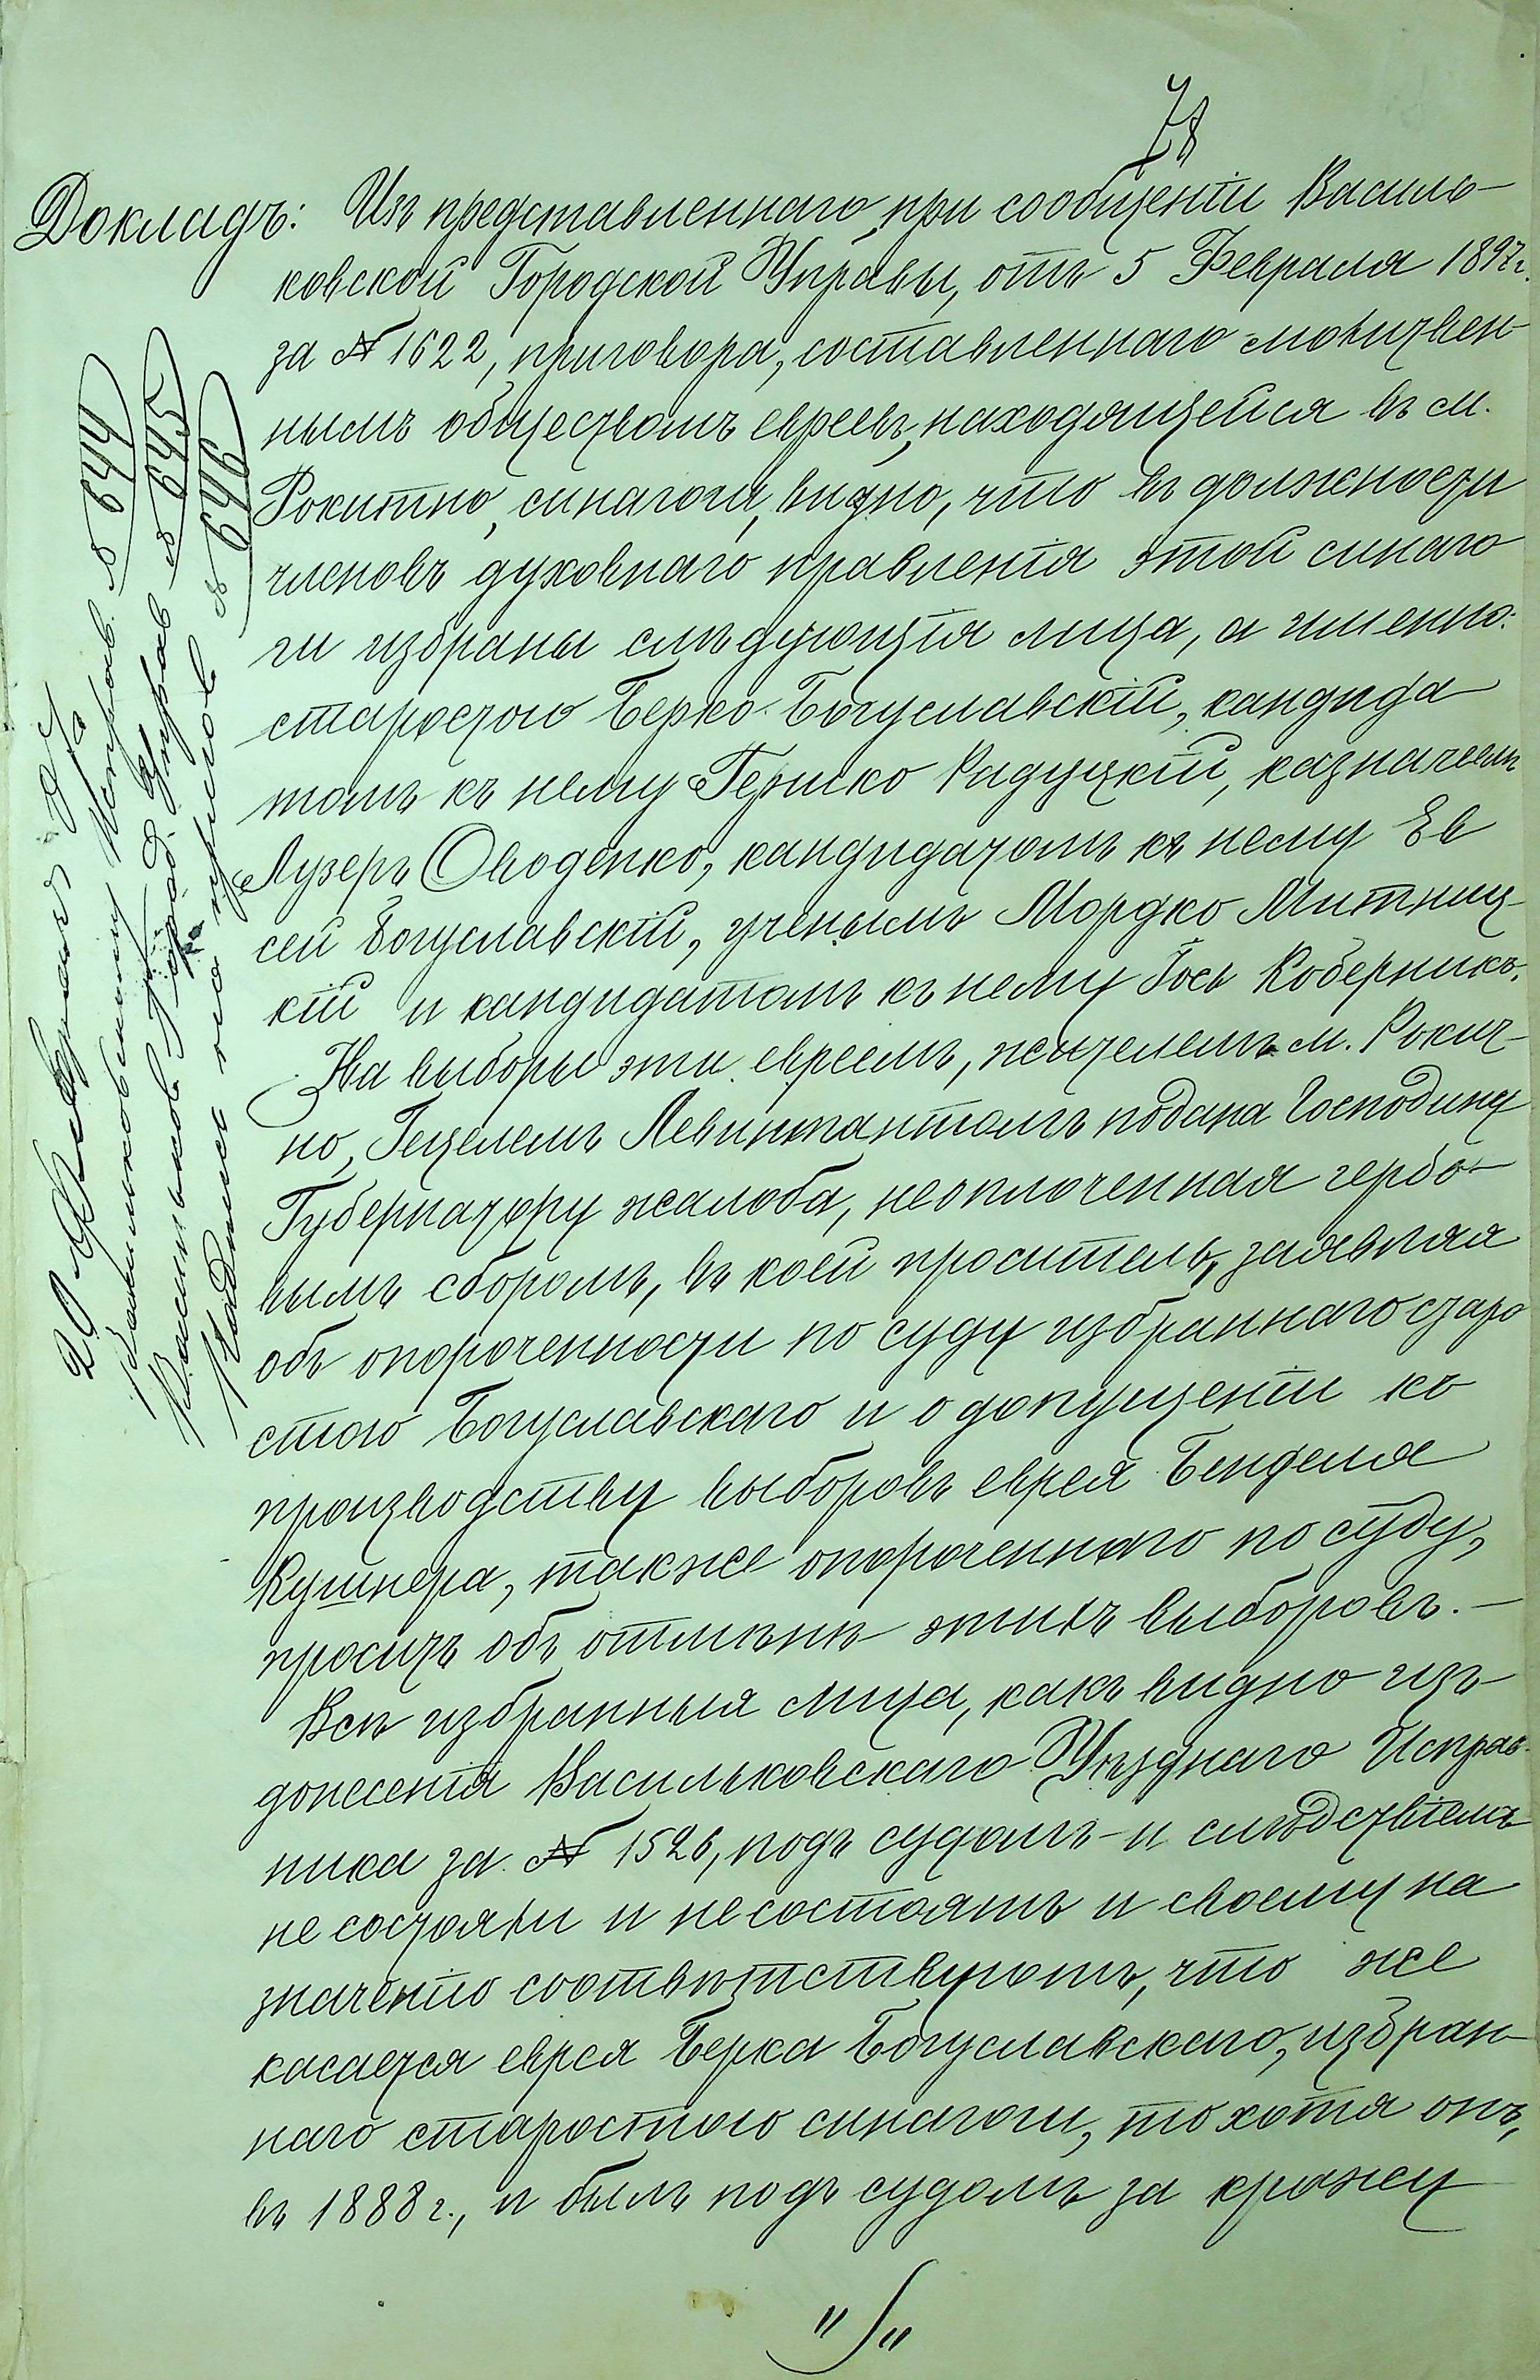 78
Докладъ: Изъ представленнаго, при сообщеніи Василь-
ковской Городской Управы, отъ 5 Февраля 1897 г.
за № 1622, приговора, составленнаго молитвен-
нымъ обществомъ евреевъ, находящейся въ м.
Рокитно, синагоги, видно, что въ должности
членовъ духовнаго правленія этой синаго
ги избраны слѣдующія лица, а именно:
старостою Берко Богуславскій, кандида
томъ къ нему Гершко Радуцкій, казначеемъ
Лузеръ Оводенко, кандидатомъ къ нему Ев
сей Богуславскій, ученымъ Мордко Митниц-
кій и кандидатомъ къ нему Іось Коберникъ.
На выборы эти евреемъ, жителемъ м. Рокит-
но, Гецелемъ Левинтантомъ подана Господину
Губернатору жалоба, неоплоченная гербо-
вымъ сборомъ, въ коей проситель, заявляя
объ опороченности по суду избраннаго старо
стою Богуславскаго и о допущеніи къ
производству выборовъ еврея Бенделя
Кушнера, также опороченнаго по суду,
проситъ объ отмѣнѣ этихъ выборовъ.—
Всѣ избранныя лица, какъ видно изъ
донесенія Васильковскаго Уѣзднаго Исправ-
ника за № 1526, подъ судомъ и слѣдствіемъ
не состояли и не состоятъ и своему на
значенію соотвѣтствуютъ, что же
касается еврея Берка Богуславскаго, избран-
наго старостою синагоги, то хотя онъ,
въ 1888 г., и былъ подъ судомъ за кражу
20 Февраля
Васильковскому Исправ. № 644
Васильков. Город. Управ № 645
Надпись на приговоръ № 646